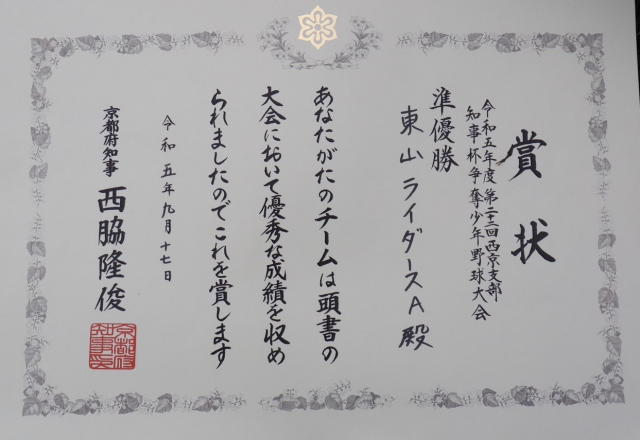 賞状
令和五年度第二十二回西京支部
知事杯争奪少年野球大会
準優勝
東山ライダースA殿
あなたがたのチームは頭書の
大会において優秀な成績を収め
られましたのでこれを賞します
令和五年九月十七日
京都府知事 西脇隆俊
京都府
知事印